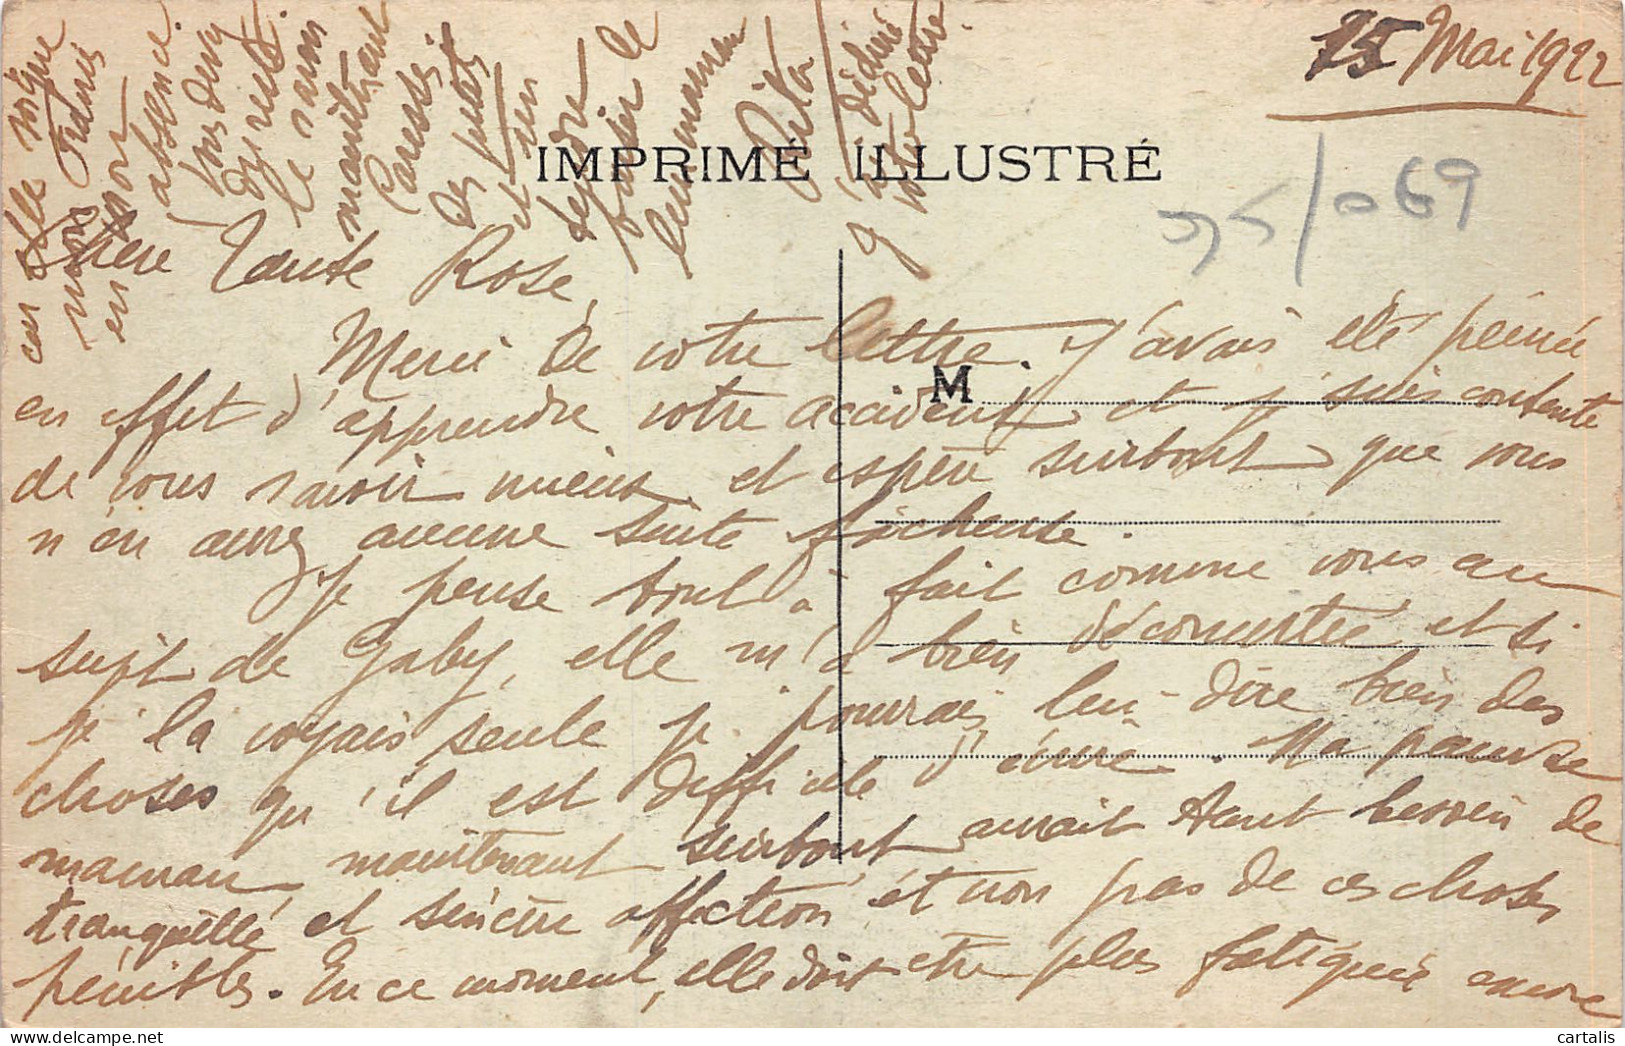 15 Mai 1922
IMPRIMÉ ILLUSTRÉ
35/069
Chère Tante Rose,
Merci de votre lettre. J'avais été peinée
en effet d'apprendre votre accident et j suis contente
de vous savoir mieux et espère surtout que vous
n'en aurez aucune suite fâcheuse.
Je pense tout à fait comme vous au
sujet de Gaby, elle m'a bien déconcertée et si
je la voyais seule je pourrais lui dire bien des
choses qu'il est difficile d'écrire. Ma pauvre
maman, maintenant surtout aurait tant besoin de
tranquillité et sincère affection et non pas de ces choses
pénibles. En ce moment, elle doit être plus fatiguée encore
M
car elle soigne
mon
en mon
absence.
Vos
le
Caresses
et un
tendre
baiser de
Rita
votre lettre
cartalis